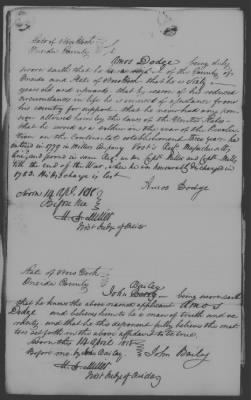 State of New York
Oneida County } ss
Amos Dodge being duly
sworn saith that he is of the County of
Oneida and State of New York that he is Sixty
years old and upwards that by reason of his reduced
circumstances in life he is in need of assistance from
his country for support that he never had any pen-
sion allowed him by the laws of the United States
that he served as a soldier in the war of the Revolu-
tion on the Continental establishment three years he
entered in 1777 in Millers Company Vose's Regt Massachusetts
line and served in same Regt under Capt Mills and Capt
till the end of the War when he was honorably discharged in
1783 his discharge is lost
Amos Dodge
Sworn 14 April 1818
Before me
First Judge of Oneida
State of New York
Oneida County
John Bailey being sworn saith
that he knows the above named applicant Amos
Dodge and believes him to be a man of truth and ve-
racity and that he this deponent fully believes the mat-
ters set forth in the above affidavit to be true
Sworn this 14 April 1818
Before me by John Bailey
John Bailey
First Judge of Oneida